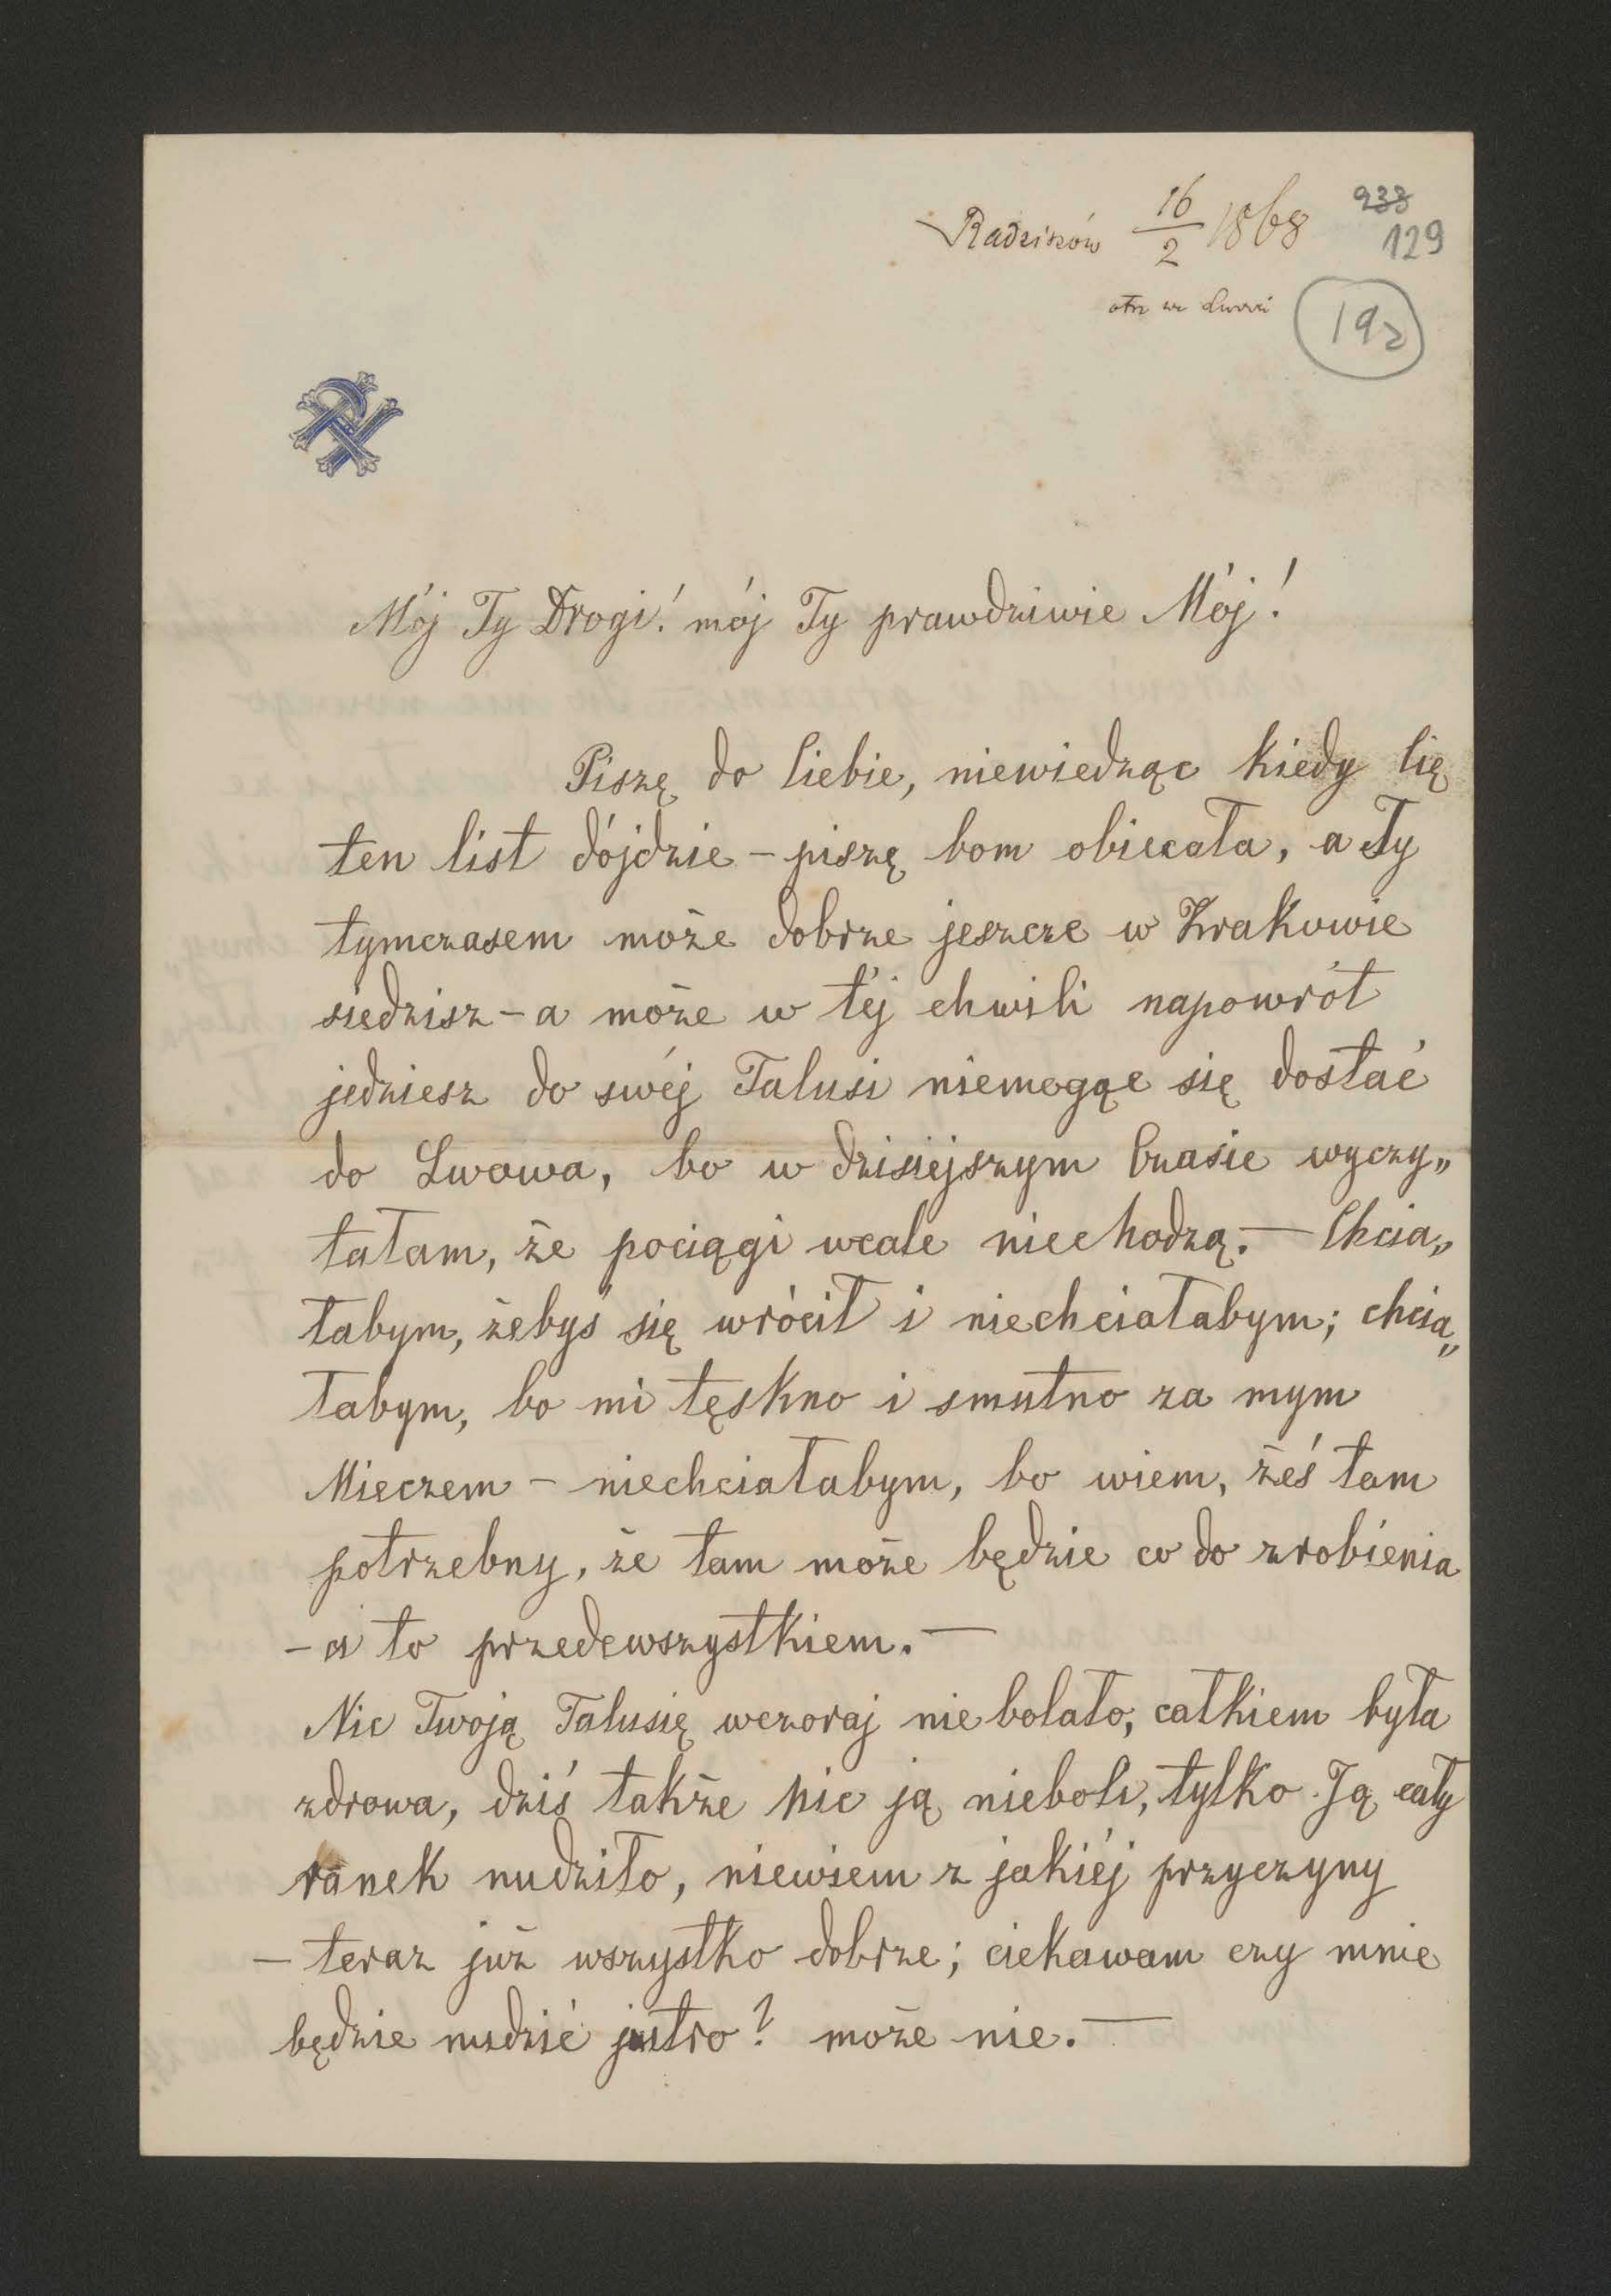 Radziszów 16/2 1868
933
129
otrz we Lwowi
192
Mój Ty Drogi! mój Ty prawdziwie Mój!
Piszę do Ciebie, niewiedząc kiedy Cię
ten list dójdzie – piszę bom obiecała, a Ty
tymczasem może dobrze jeszcze w Krakowie
siedzisz – a może w téj chwili napowrót
jedziesz do swéj Talusi niemogąc się dostać
do Lwowa, bo w dzisiejszym Czasie wyczy„
tałam, że pociągi wcale niechodzą. — Chcia„
łabym, żebyś się wrócił i niechciałabym; chcia„
łabym, bo mi tęskno i smutno za mym
Mieczem – niechciałabym, bo wiem, żeś tam
potrzebny, że tam może będzie co do zrobienia
– a to przedewszystkiem. —
Nic Twoją Talusię wczoraj niebolało, całkiem była
zdrowa, dziś także nic ją nieboli, tylko Ją cały
ranek nudziło, niewiem z jakiéj przyczyny
– teraz już wszystko dobrze; ciekawam czy mnie
będzie nudzić jutro? może nie. —